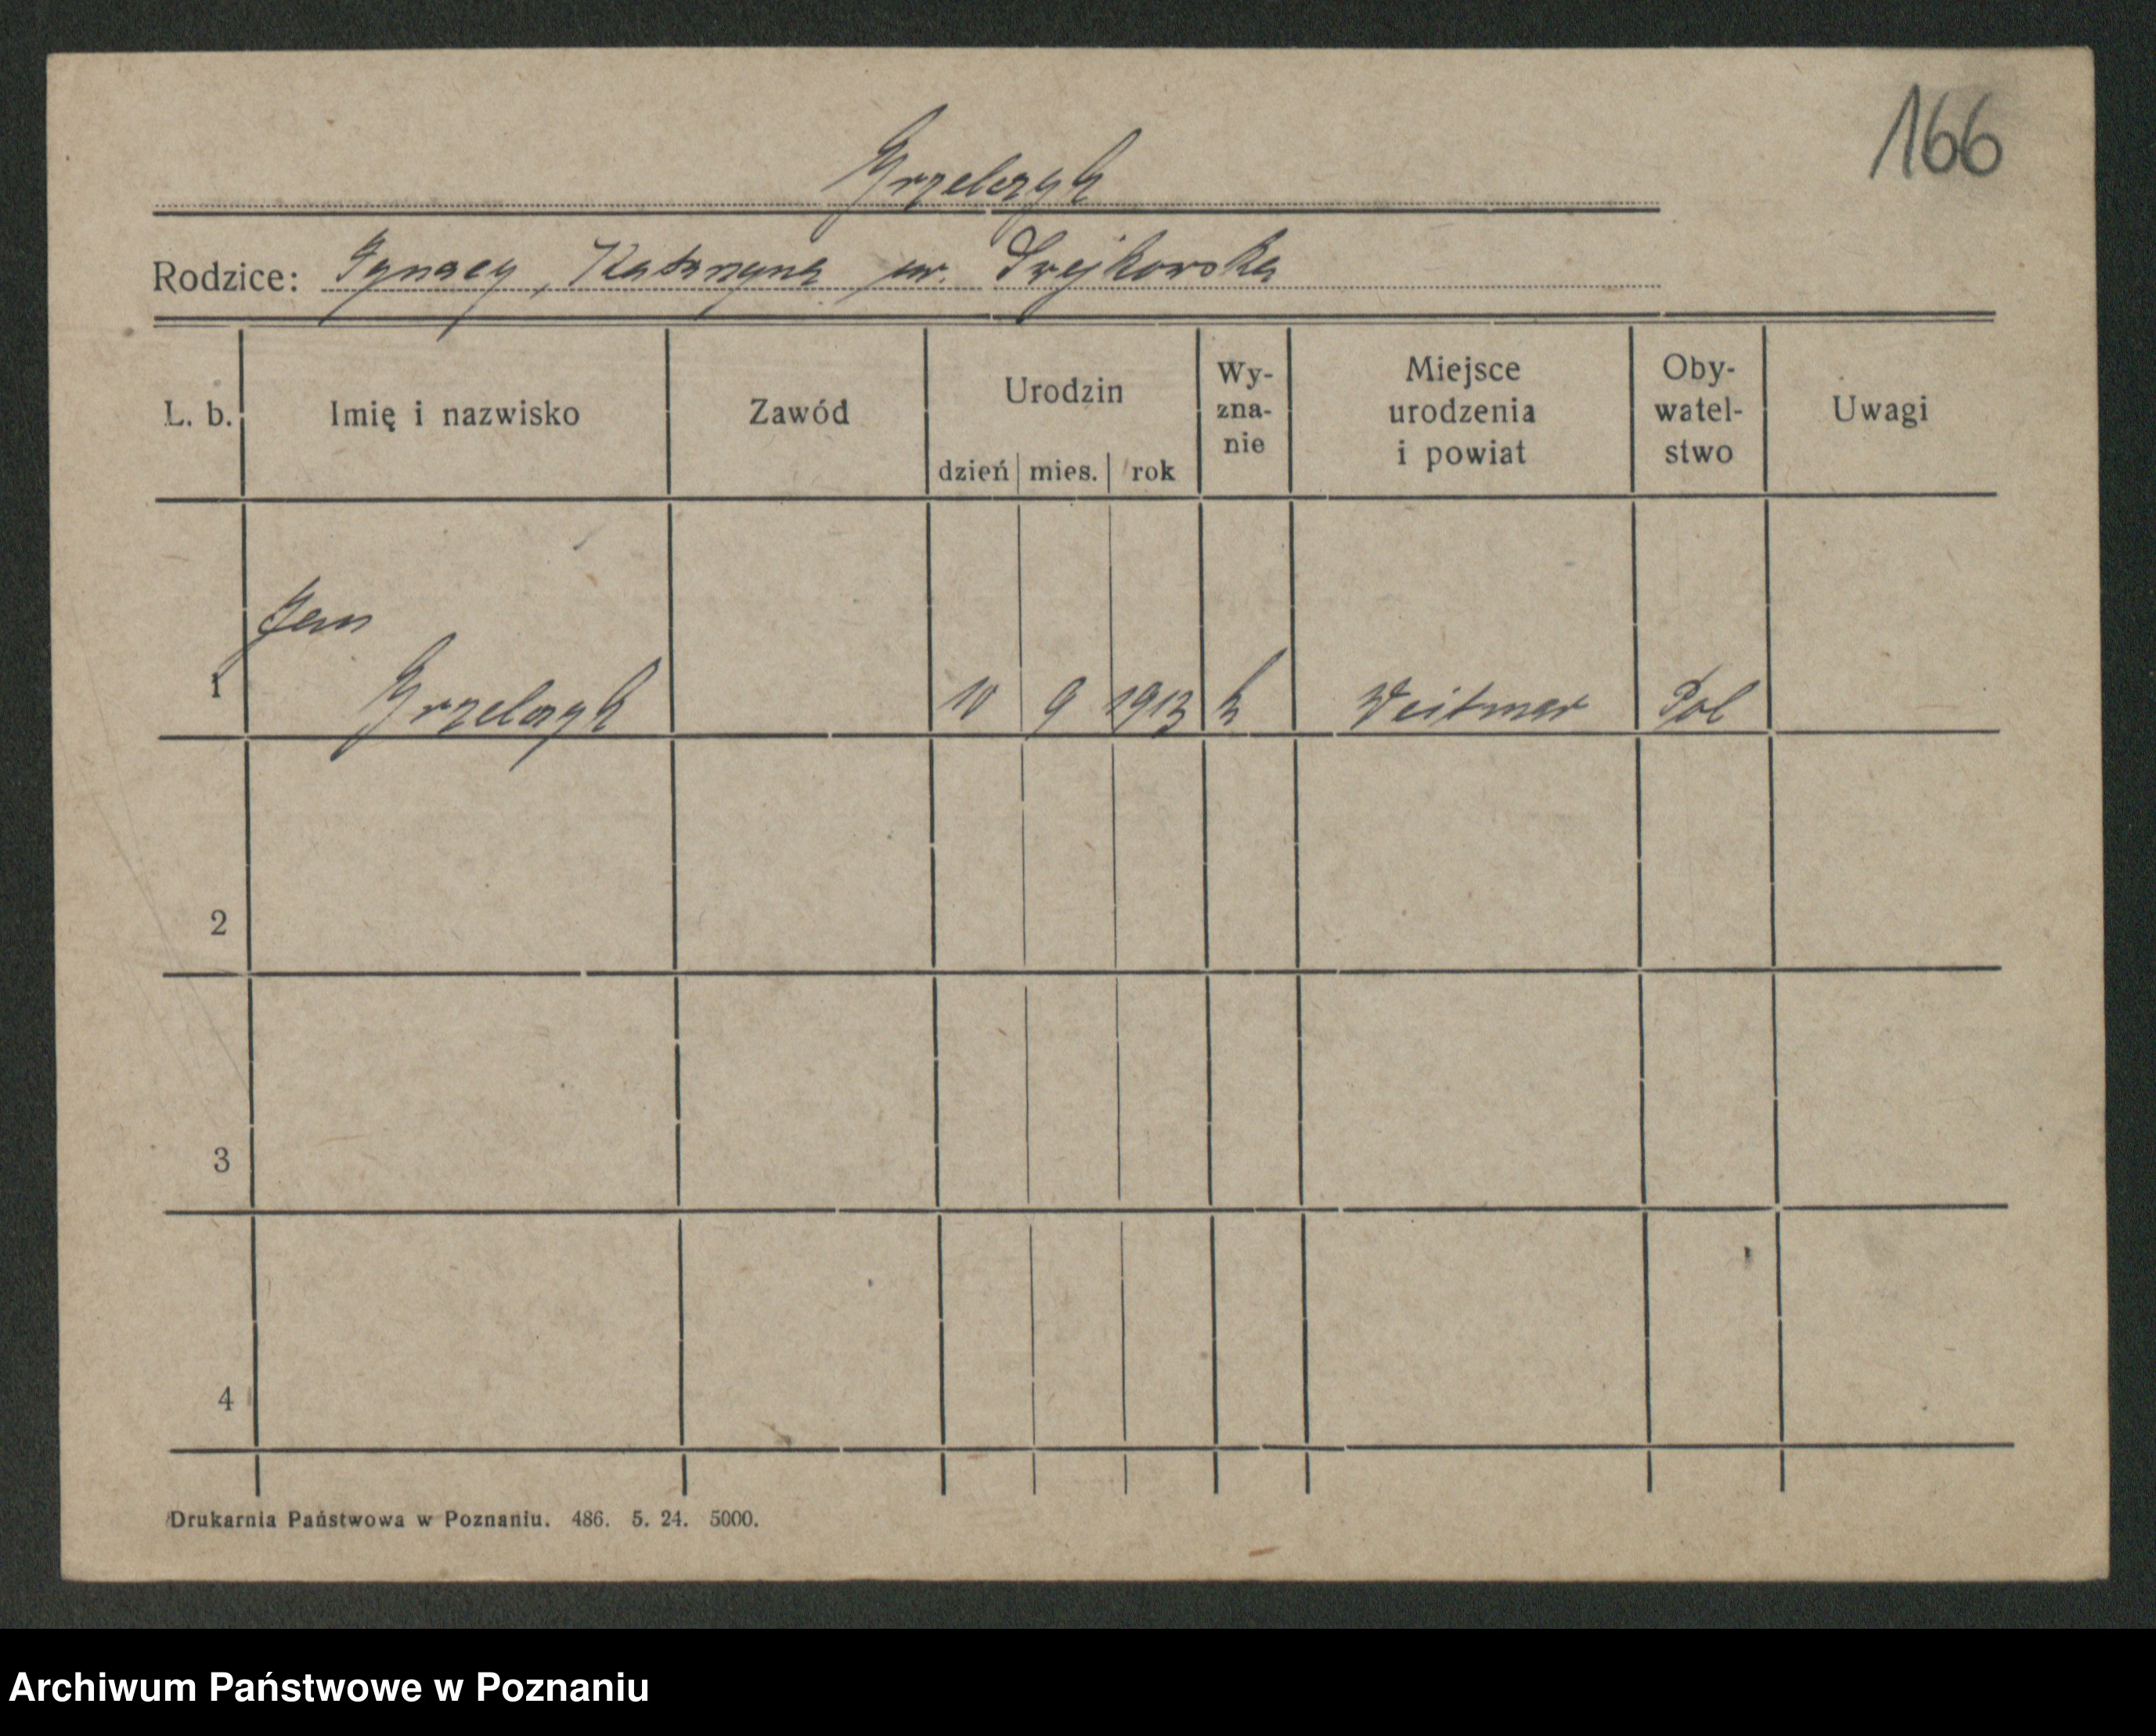 166
Grzelczyk
Rodzice: Ignacy, Katarzyna ur.
L. b. Imię i nazwisko Zawód Urodzin dzień mies. rok Wy-zna-nie Miejsce urodzenia i powiat Oby-watel-stwo Uwagi
Jan
1 Grzelczyk 10 9 1913 k Weitmar Pol
2
3
4
Drukarnia Państwowa w Poznaniu. 486. 5. 24. 5000.
Archiwum Państwowe w Poznaniu